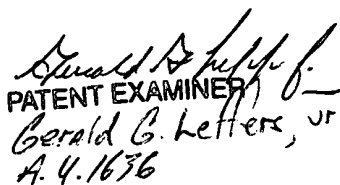 Gerald G. Leffers Jr.
PATENT EXAMINER
Gerald G. Leffers, Jr
A.U. 1636